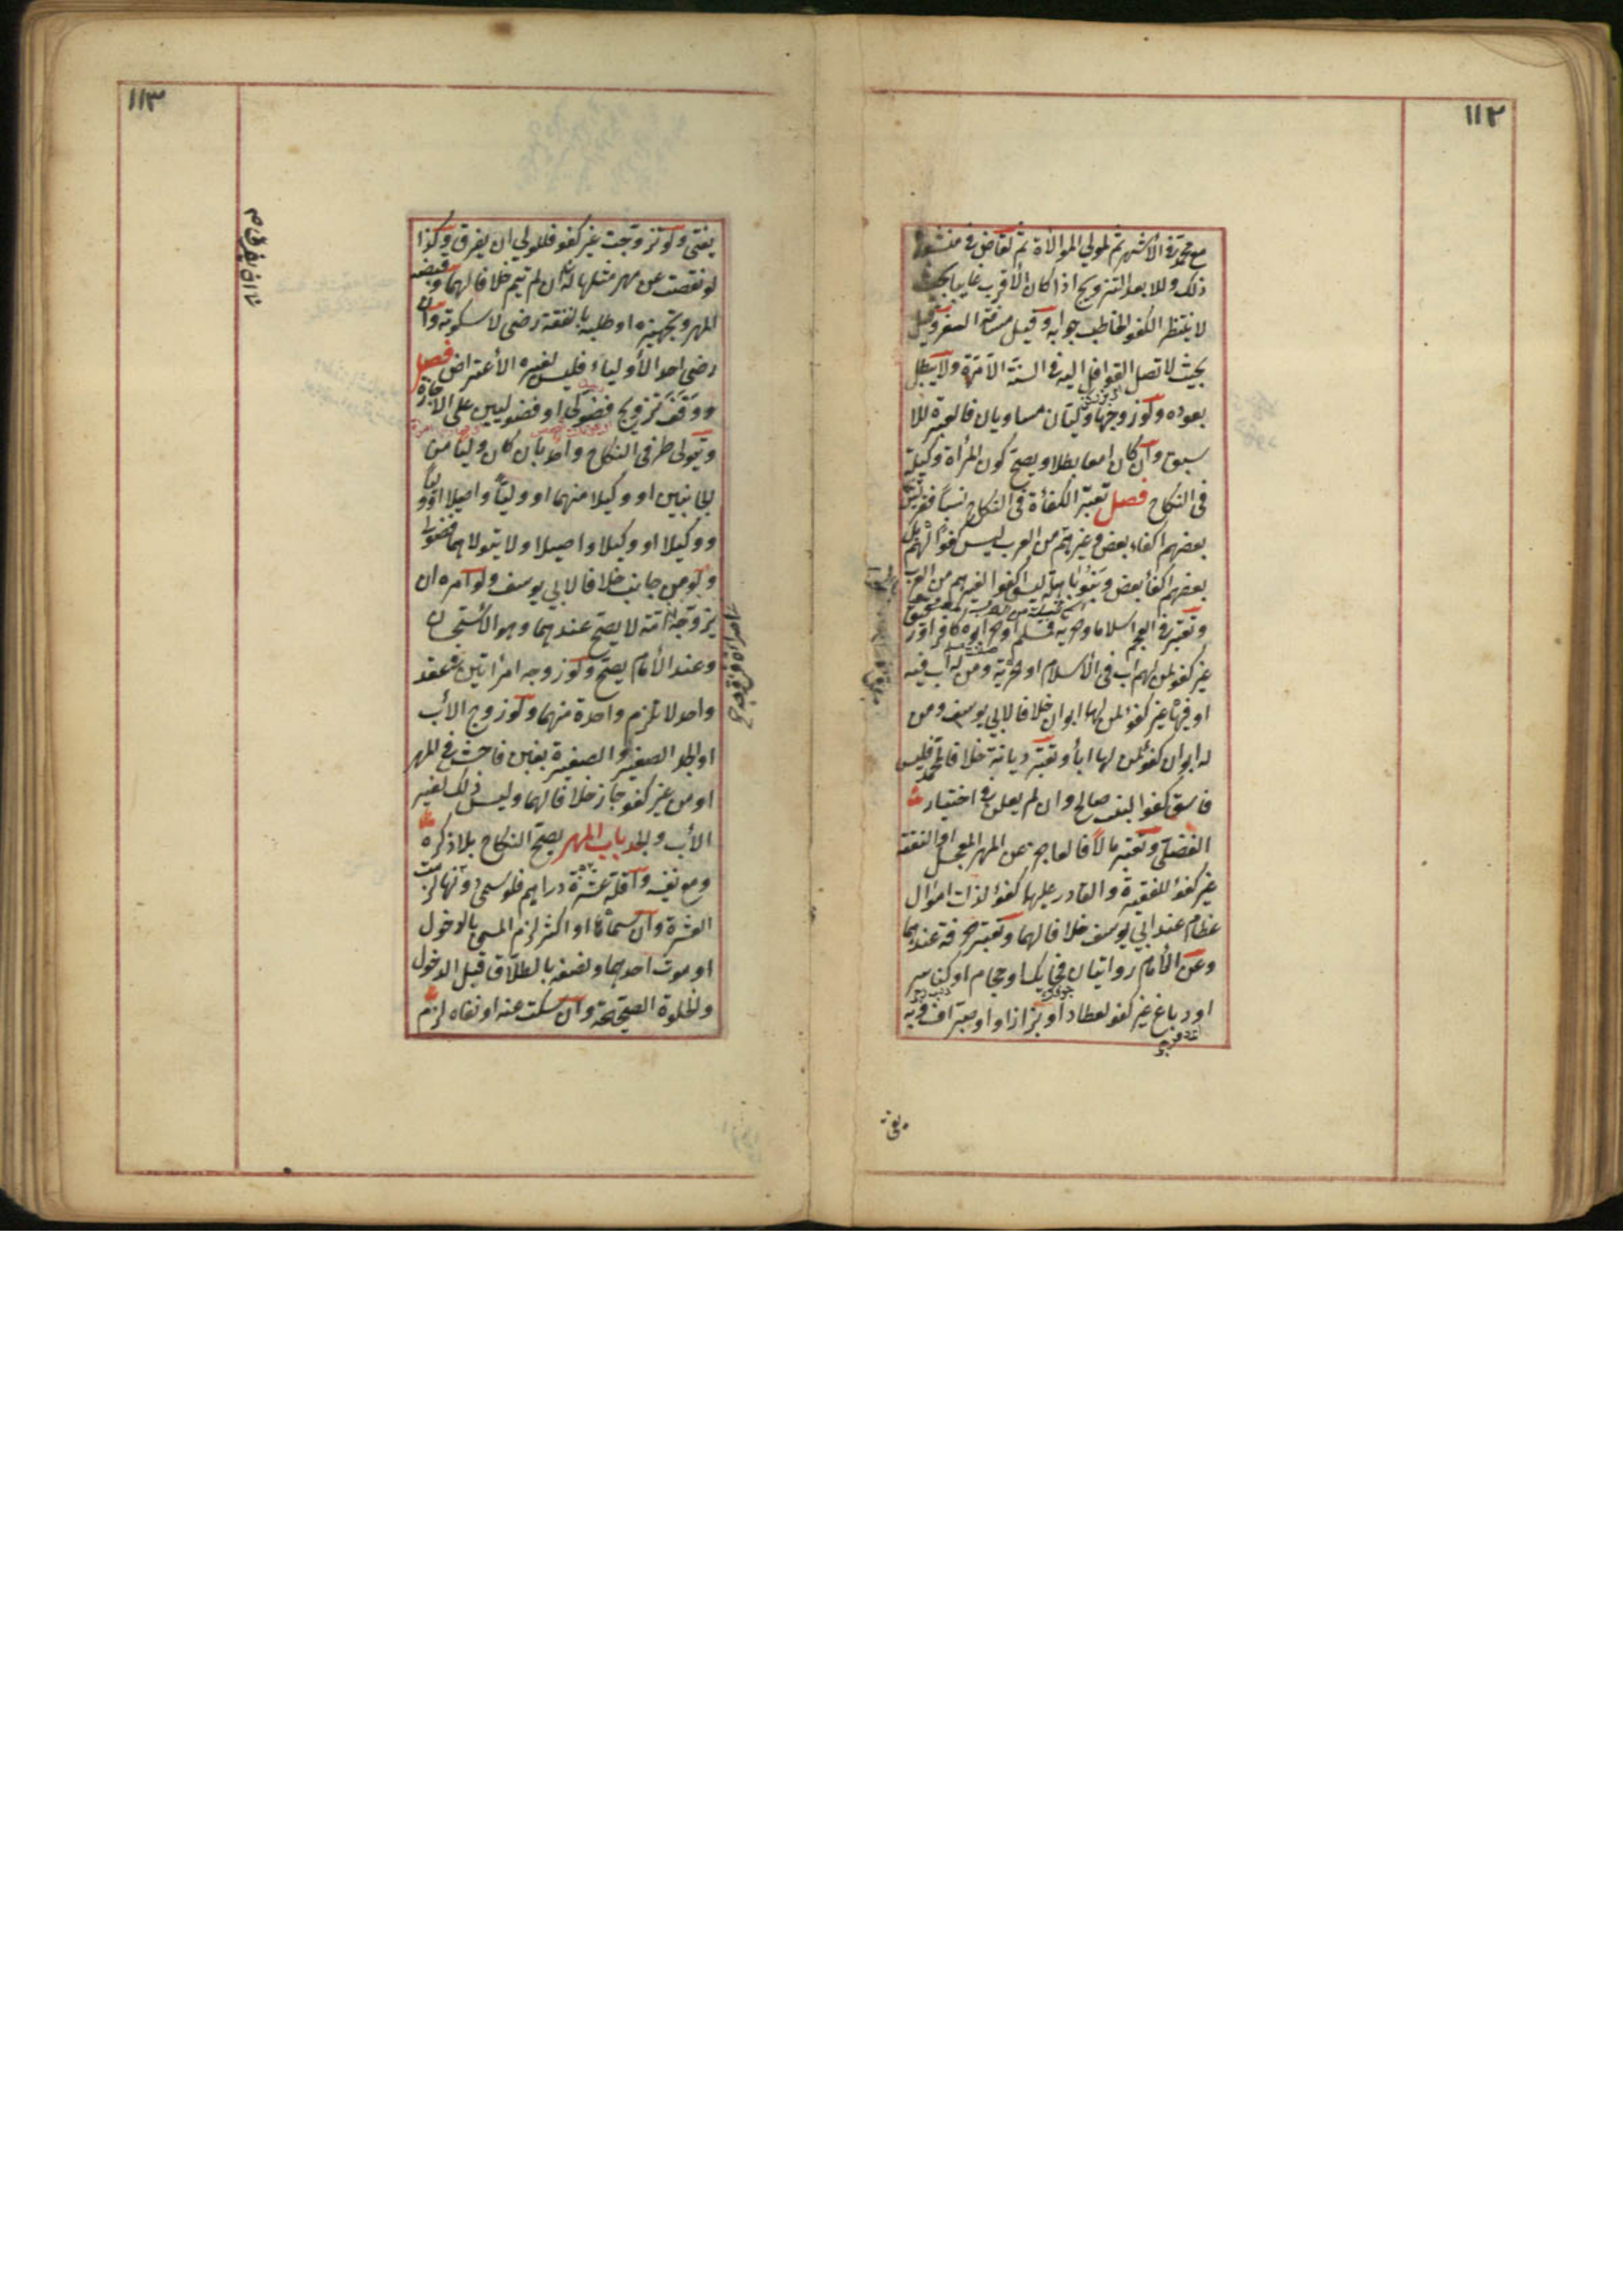 ١١٢
مع محمد في الأشهر ثم لمولي الموالاة ثم لقاض في منشوره
ذلك وللابعد التزويج اذا كان الأقرب غايبا بحيث
لا ينتظر الكفو الخاطب جوابه وقيل مسافة السفر وقيل
بحيث لا تصل القوافل اليه في السنة الا مرة ولا يبطل
بعوده ولو زوجها وليان مساويان فالعبرة للا
سبق وان كان امعا بطلا ويصح كون المرأة وكيلة
في النكاح فصل تعتبر الكفأة في النكاح نسبا فقريش
بعضهم اكفاء بعض وغيرهم من العرب ليس كفوا لهم بل
بعضهم اكفأ بعض وبنو باهلة ليسو اكفوا لغيرهم من العرب
وتعتبر في العجم اسلاما وحرية فمسلم او حر ابوه كافر او رق
غير كفو لمن لهم اب في الأسلام او الحرية ومن له اب فيه
او فيها غير كفو لمن لها ابوان خلافا لابي يوسف ومن
له ابوان كفو لمن لها ابأ وتعتبر ديانة خلافا لمحمد فليس
فاسق كفوا لبنت صالح وان لم يعلن في اختيار
الفضلي وتعتبر مالا فالعاجز عن المهر المعجل او النفقة
غير كفؤ للفقيرة والقادر عليها كفؤ لذات اموال
عظام عند ابي يوسف خلافا لهما وتعتبر حرفة عندهما
وعن الأمام روايتان فحايك او حجام او كناس
او دباغ غير كفو لعطار او بزاز او صراف وبه
يفتى
١١٣
يفتى ولو تزوجت غير كفو فللولي ان يفرق وكذا
لو نقصت عن مهر مثلها له ان لم تيم خلافا لهما وقبضه
المهر وتجهيزه او طلبه بالنفقة رضى لا سكوته وان
رضى احد الأولياء فليس لغيره الأعتراض فصل
ووقف تزويج فضولى او فضوليين على الاجازة
ويتولى طرفى النكاح واحد بان كان وليا من
الجانبين او وكيلا منهما او وليا واصيلا او وليا
ووكيلا او وكيلا واصيلا ولا يتولاهما فضولى
ولو من جانب خلافا لابي يوسف ولو امره ان
يزوجه امة لا يصح عندهما وهو الأستحسان
وعند الأمام يصح ولو زوجه امرأتين في عقد
واحد لا تلزم واحدة منهما ولو زوج الأب
او الجد الصغير والصغيرة بغبن فاحش في المهر
او من غير كفو جاز خلافا لهما وليس ذلك لغير
الأب والجد باب المهر يصح النكاح بلا ذكره
ومع نفيه واقله عشرة دراهم فلو سمى دونها لزمت
العشرة وان سماها او اكثر لزم المسمى بالدخول
او موت احدهما ونصفه بالطلاق قبل الدخول
والخلوة الصحيحة وان سكت عنه او نفاه لزم